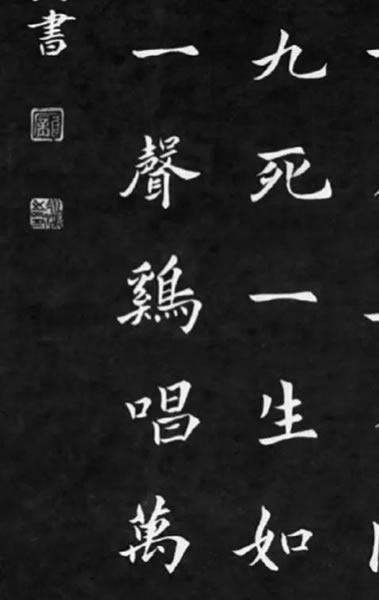 九死一生如
一聲鷄唱萬
書